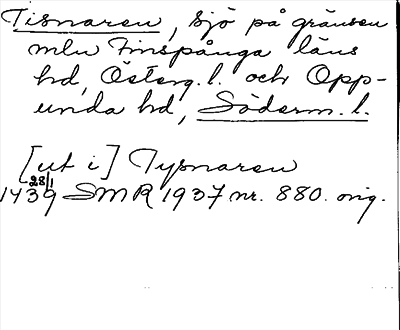 Tisnaren, sjö på gränsen
mln Finspånga läns
hd, Österg. l. och Opp-
unda hd, Söderm. l.
[ut i] Tysnaren
28/1
1439 SMR 1937 nr. 880. orig.